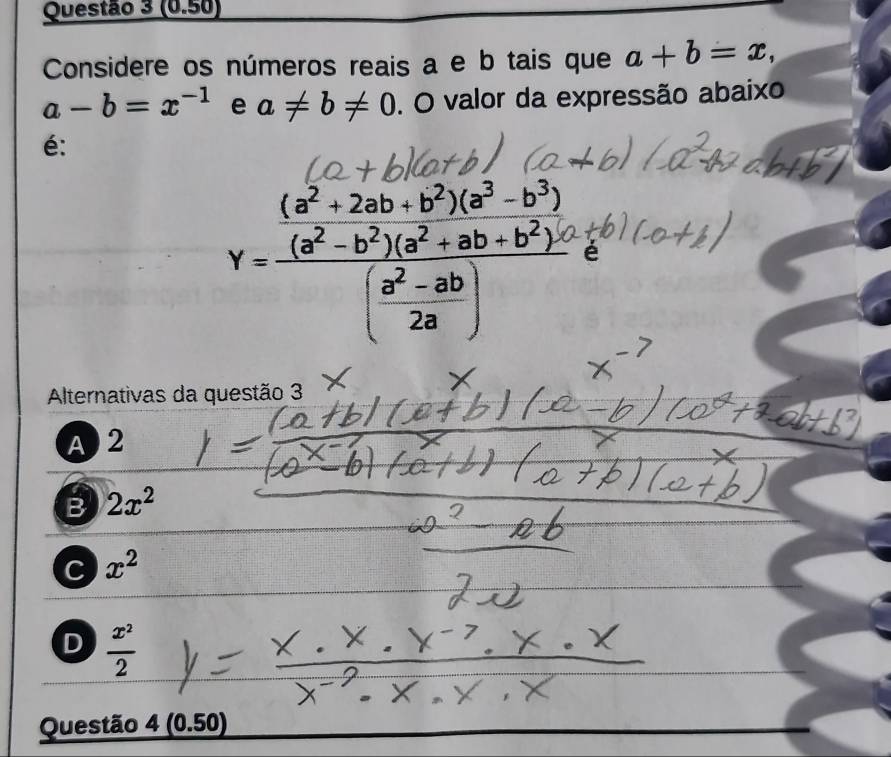 Questão 3 (0.50)
Considere os números reais a e b tais que a + b = x,
a − b = x⁻¹ e a ≠ b ≠ 0. O valor da expressão abaixo
é:
(a + b)(a+b) (a+b) (a²+2ab+b²)
(a² + 2ab + b²)(a³ − b³)
(a² − b²)(a² + ab + b²) (a+b)(a+b)
Y = é
(a² − ab / 2a)
Alternativas da questão 3 x x x⁻¹
(a+b)(a+b)(a−b)(a²+2ab+b²)
A 2 y =
x⁻¹ x x x
(a−b)(a+b)(a+b)(a+b)
B 2x²
a² − ab
C x²
2a
D x²/2 y = x . x . x⁻¹ . x . x
x⁻¹ . x . x . x
Questão 4 (0.50)